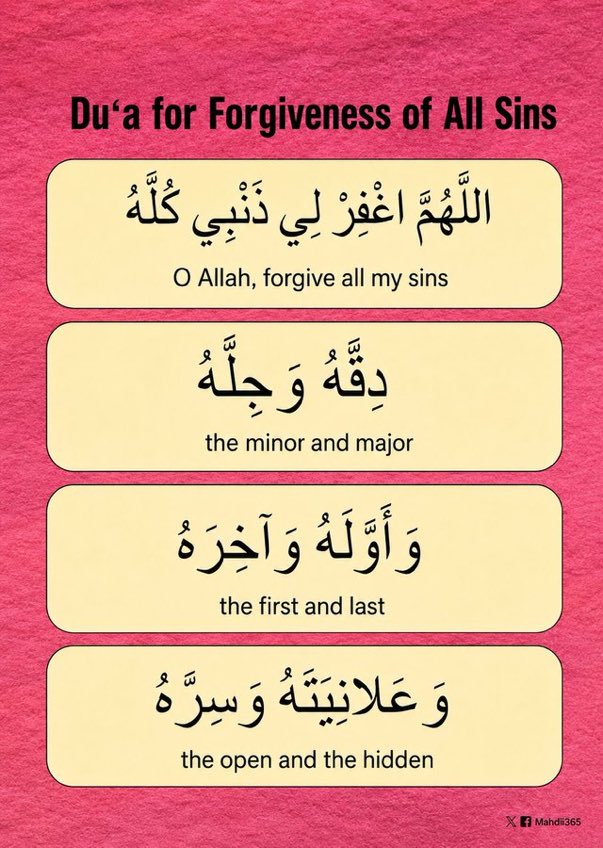 Du‘a for Forgiveness of All Sins
اللَّهُمَّ اغْفِرْ لِي ذَنْبِي كُلَّهُ
O Allah, forgive all my sins
دِقَّهُ وَجِلَّهُ
the minor and major
وَأَوَّلَهُ وَآخِرَهُ
the first and last
وَعَلانِيَتَهُ وَسِرَّهُ
the open and the hidden
Mahdii365